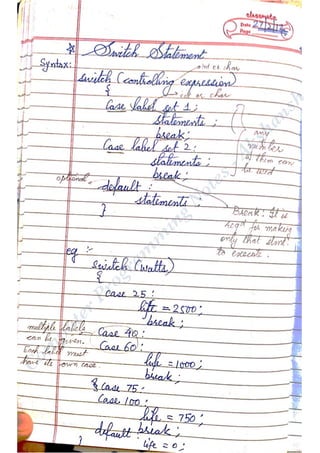 classmate
Date 27/3/
Page
* Switch Statement
Syntax:
int or char
switch (controlling expression)
{ int or char
Case label set 1;
statements;
break;
Case label set 2:
statements;
break;
any
number
of them can
be used
optional
default :
statements;
}
Break: It is
reqd for making
only that stmt.
to execute.
eg :-
switch (watts)
{
case 25:
life = 2500;
break;
Case 40:
Case 60:
life = 1000;
break;
multiple labels
can be given.
Each label must
have its own case.
{ case 75:
Case 100:
life = 750;
break;
default :
life = 0;
}
Programming Notes